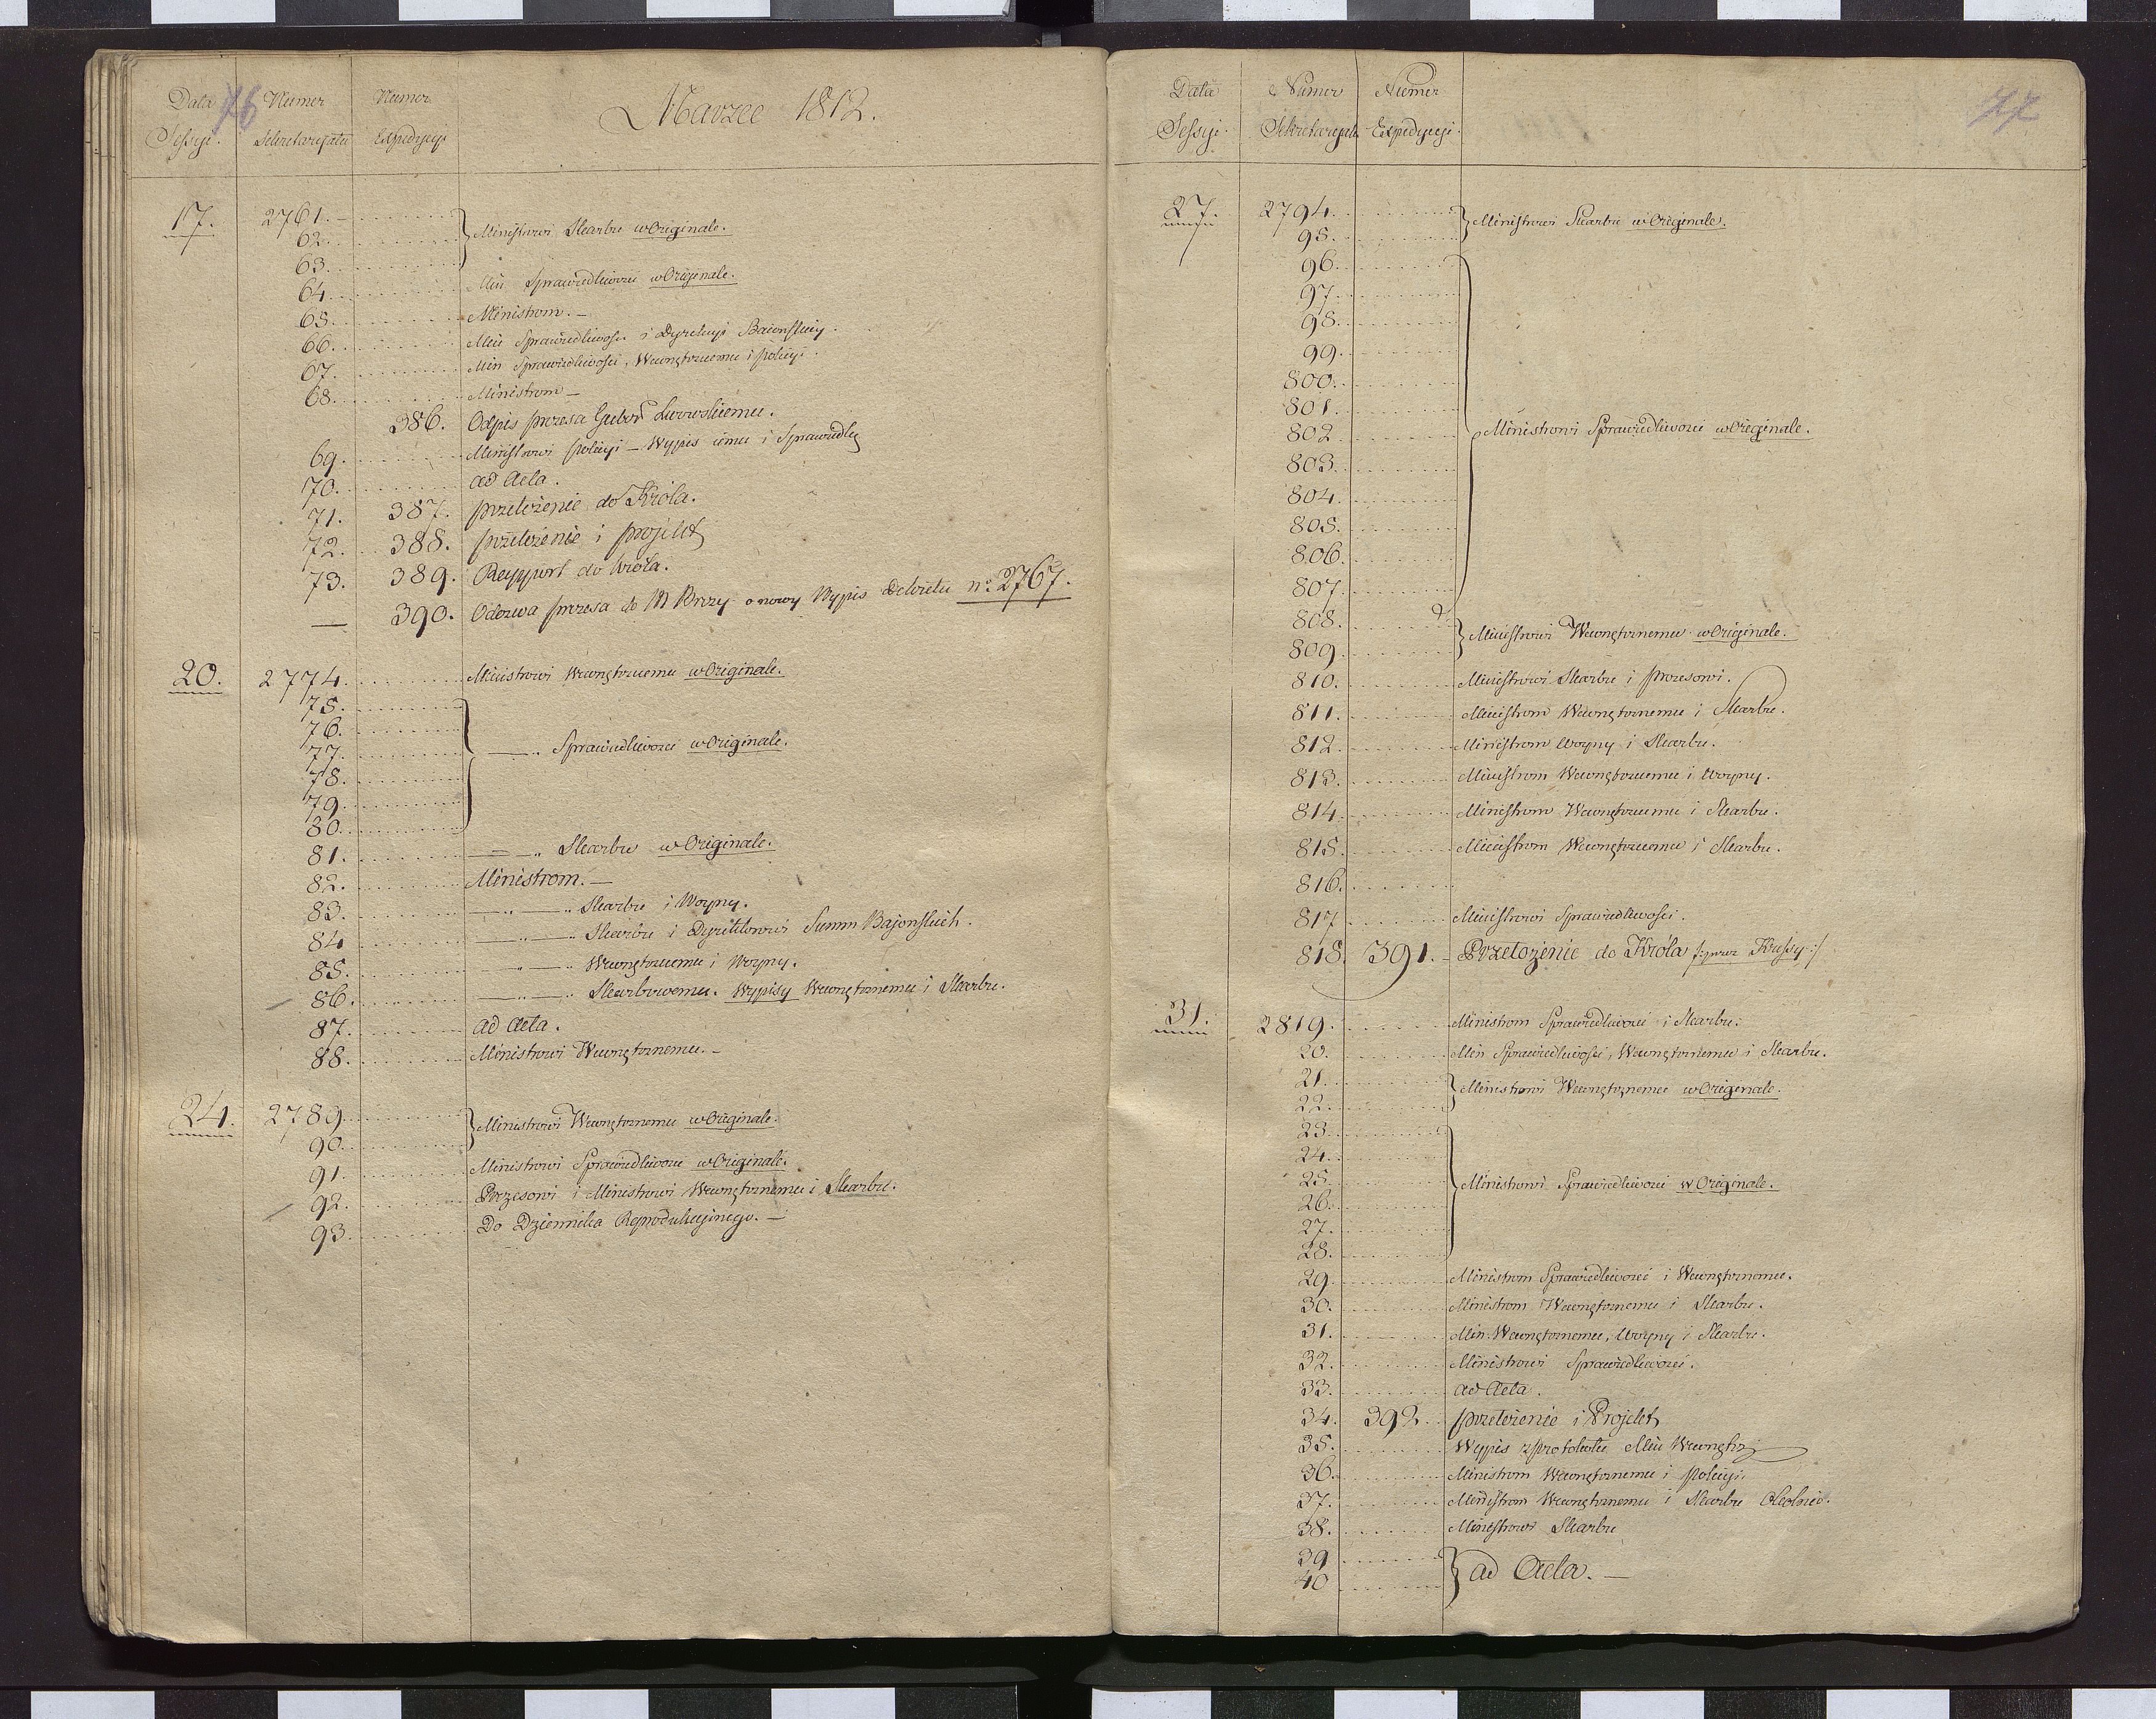 76
Data Sessyi. Numer Sekretaryatu Numer Expedycyi Marzec 1812.
17. 2761. Ministrowi Skarbu w Originale.
62.
63.
64. Min Sprawiedliwości w Originale.
65. Ministrom. –
66. Min Sprawiedliwości i Dyrekcyi Baionskiey.
67. Min Sprawiedliwości, Wewnętrznemu i policyi.
68. Ministrom –
386. Odpis prezesa Gubor Lwowskiemu.
69. Ministrowi policyi – Wypis iemu i Sprawiedlię
70. ad Acta.
71. 387. przełożenie do Króla.
72. 388. przełożenie i projekt
73. 389. Rapport do króla.
— 390. Odezwa prezesa do M Brezy o nowy Wypis Dekretu no 2767.
20. 2774. Ministrowi Wewnętrznemu w Originale.
75.
76.
77. —„ Sprawiedliwości w Originale.
78.
79.
80.
81. —„ Skarbu w Originale.
82. Ministrom. —
83. —„—„ Skarbu i Woyny.
84 —„—„ Skarbu i Dyrektorowi Summ Bajonskich.
85. „—„ Wewnętrznemu i Woyny.
86. —„—„ Skarbowemu. Wypisy Wewnętrznemu i Skarbu.
87. ad Acta.
88. Ministrowi Wewnętrznemu. –
24. 2789. Ministrowi Wewnętrznemu w Originale.
90.
91. Ministrowi Sprawiedliwości w Originale.
92. Prezesowi i Ministrowi Wewnętrznemu i Skarbu.
93. Do Dziennika Reprodukcyinego. —
77
Data Sessyi. Numer Sekretaryatu Numer Expedycyi.
27. 2794. Ministrowi Skarbu w Originale.
95.
96.
97.
98.
99.
800.
801.
802. Ministrowi Sprawiedliwości w Originale.
803.
804.
805.
806.
807.
808.
809. Ministrowi Wewnętrznemu w Originale.
810. Ministrowi Skarbu i prezesowi.
811. Ministrom Wewnętrznemu i Skarbu.
812. Ministrom Woyny i Skarbu.
813. Ministrom Wewnętrznemu i Woyny.
814. Ministrom Wewnętrznemu i Skarbu.
815. Ministrom Wewnętrznemu i Skarbu.
816.
817. Ministrowi Sprawiedliwości.
818. 391. – Przełożenie do Króla /: przez :/
31. 2819. Ministrom Sprawiedliwości i Skarbu.
20. Min Sprawiedliwości, Wewnętrznemu i Skarbu.
21. Ministrowi Wewnętrznemu w Originale.
22.
23.
24.
25. Ministrowi Sprawiedliwości w Originale.
26.
27.
28.
29. Ministrom Sprawiedliwości i Wewnętrznemu.
30. Ministrom Wewnętrznemu i Skarbu.
31. Min. Wewnętrznemu, Woyny i Skarbu.
32. Ministrowi Sprawiedliwości.
33. ad Acta.
34. 392. przełożenie i Projekt
35. Wypis z protokołu Min Wewnętrz
36. Ministrom Wewnętrznemu i policyi.
37. Ministrom Wewnętrznemu i Skarbu
38. Ministrowi Skarbu
39 ad Acta. —
40